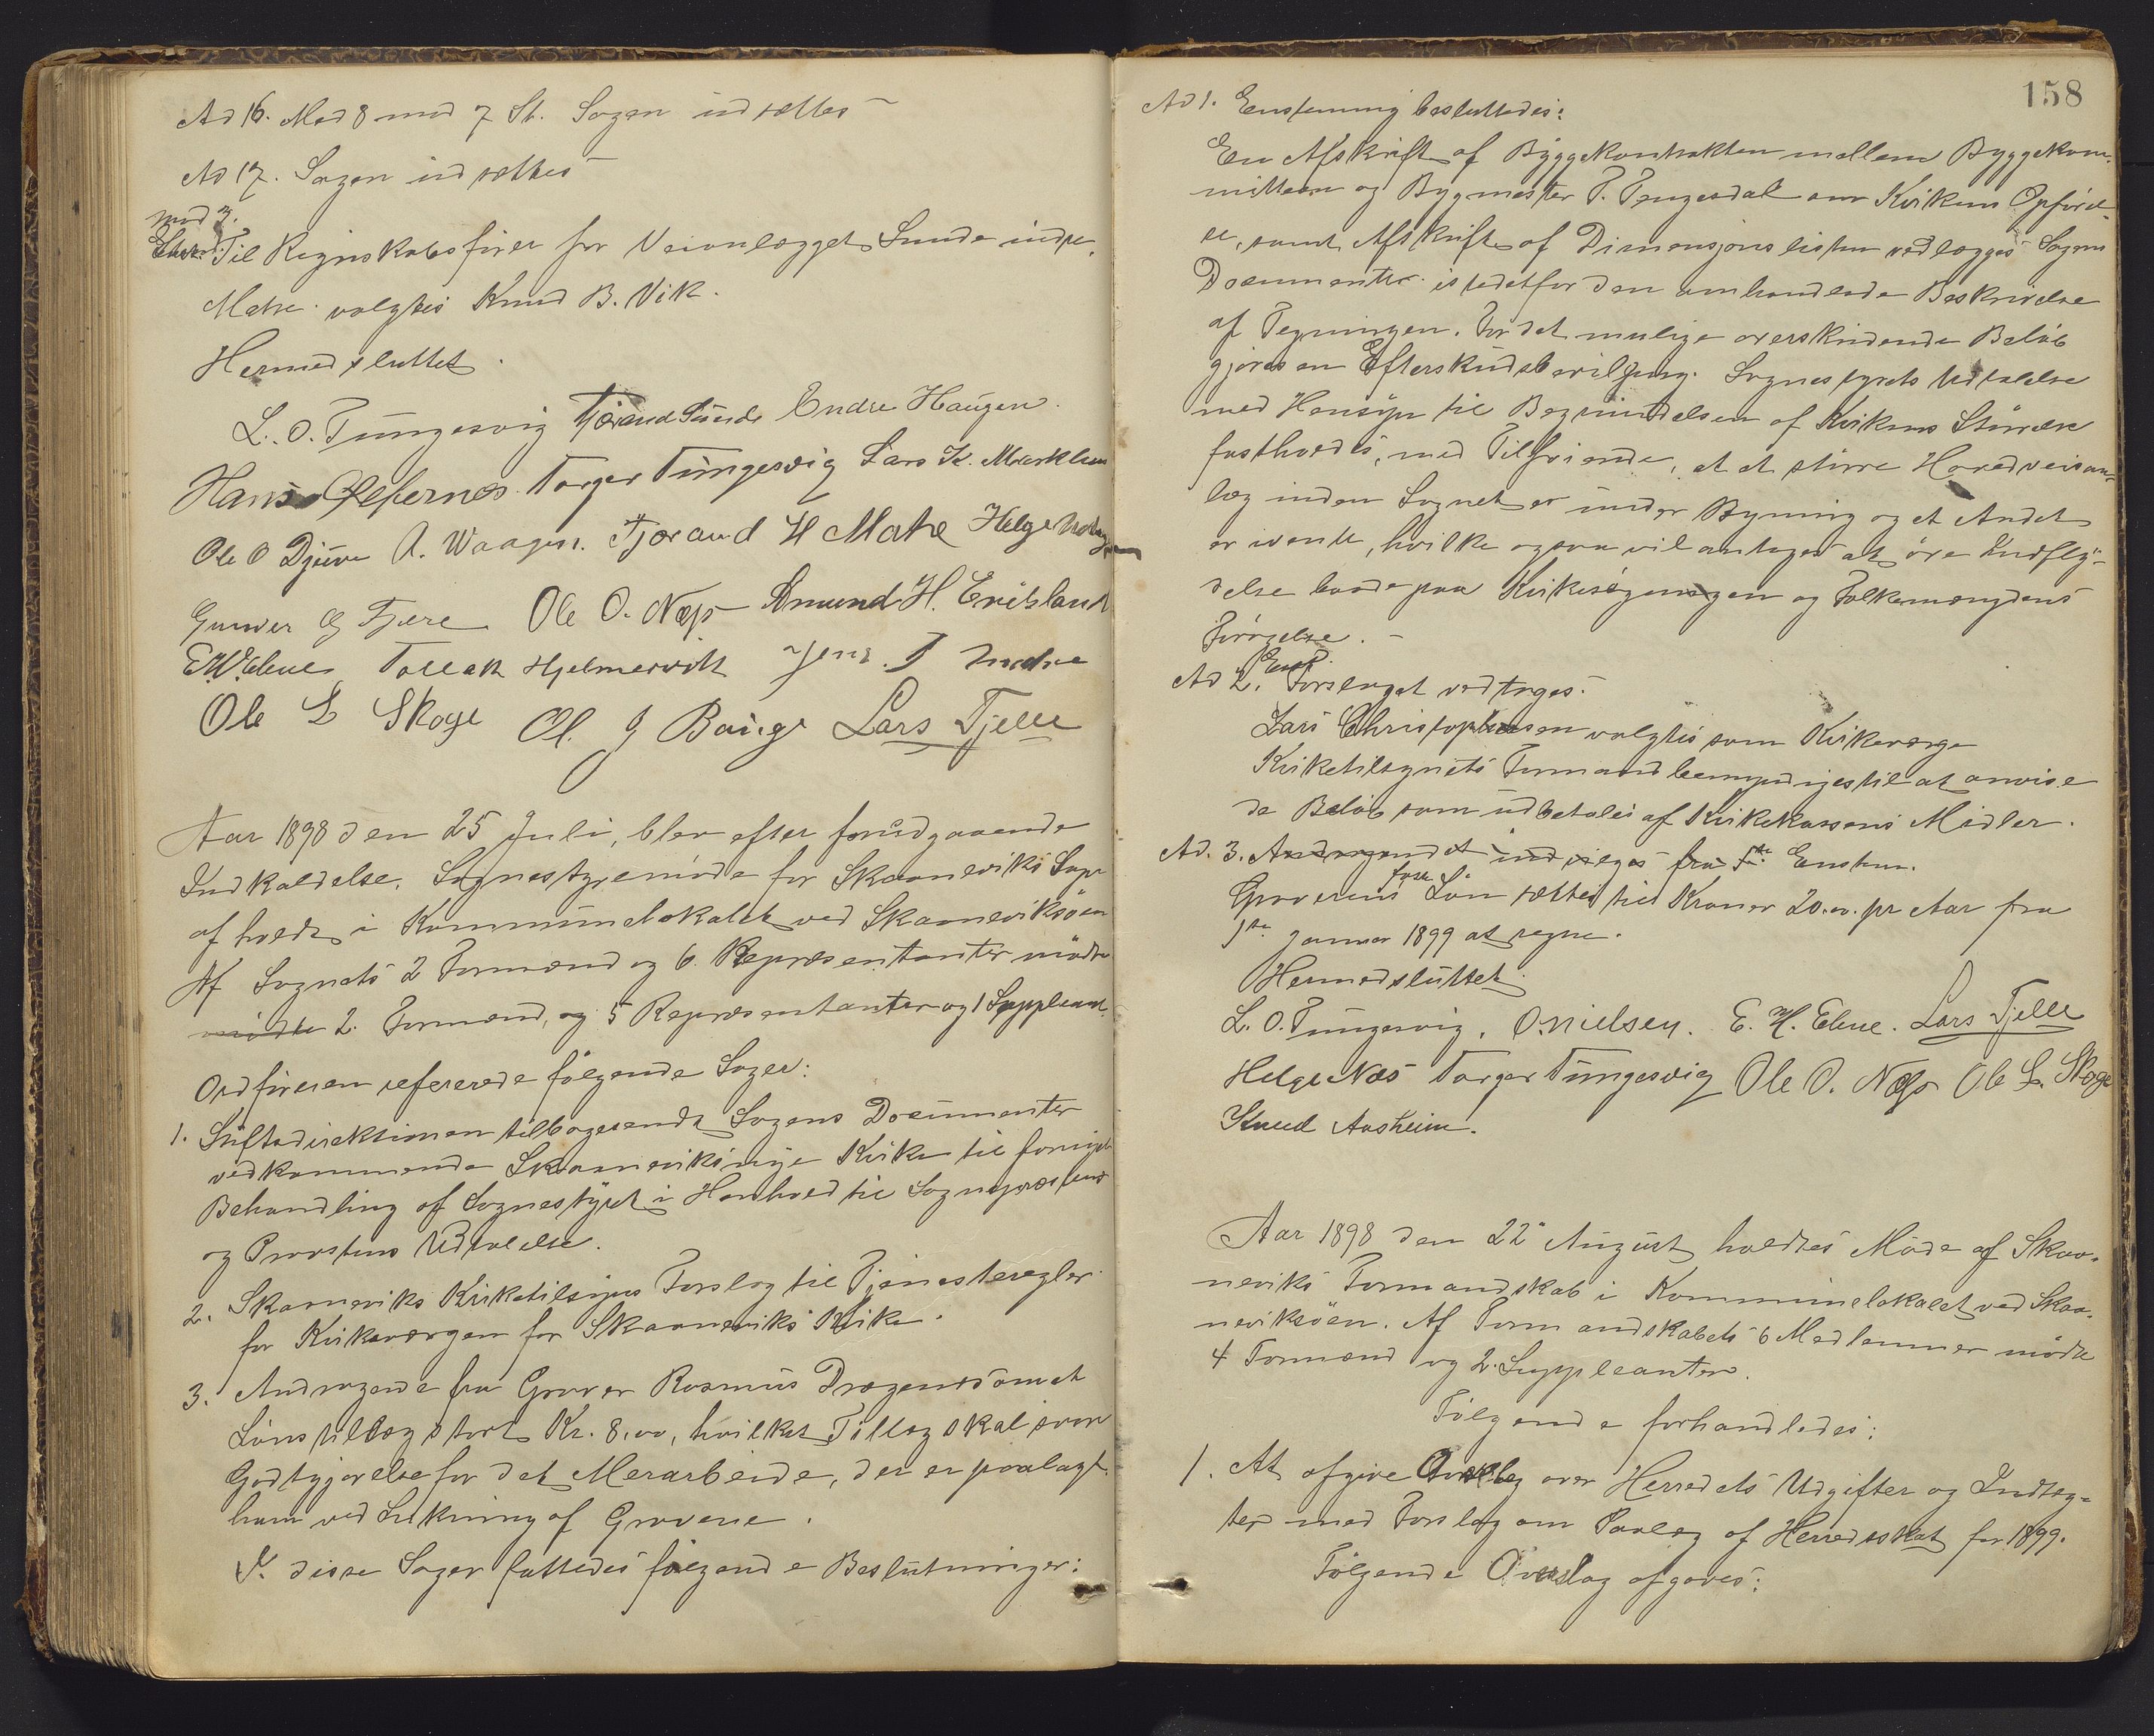 Ad 16. Med 8 mod 7 St. Sagen udsættes
Ad 17. Sagen udsættes
mod 3.
Til Regnskabsfører for Veianlægget Sunde indre
Matre valgtes Knud B. Vik.
Hermed sluttet.
L. O. Tungesvig Tjærand Sunde Endre Haugen.
Hans Ølfernes Torger Tungesvig Lars K. Markhus
Ole O Djuve A. Waagen. Tjærand H Matre Helge
Gunver G Fjære Ole O. Næss Amund H. Eritsland
E. H. Ebne Tollak Hjelmervik Jens. J Indre
Ole L Skoge Ol. J Bauge Lars Fjelle
Aar 1898 den 25 Juli, blev efter forudgaaende
Indkaldelse, Sognestyremøde for Skaaneviks Sogn
afholdt i Kommunelokalet ved Skaaneviksøen
Af Sognets 2 Formænd og 6 Repræsentanter mødte
mødte 2 Formænd, og 5 Repræsentanter og 1 Suppleant.
Ordføreren refererede følgende Sager:
1. Stiftsdirektionen tilbagesendt Sagens Documenter
vedkommende Skaaneviks nye Kirke til fornyet
Behandling af Sognestyret i Henhold til Sognepræstens
og Provstens Udtalelse.
2. Skaaneviks Kirketilsyns Forslag til Tjenesteregler
for Kirkeværgen for Skaaneviks Kirke.
3. Andragende fra Graver Rasmus Dragenes om et
Lønstillæg stort Kr. 8,00, hvilket Tillæg skal være
Godtgjørelse for det Merarbeide, der er paalagt
ham ved Lukning af Gravene.
I disse Sager fattedes følgende Beslutninger:
158
Ad 1. Enstemmig besluttedes:
En Afskrift af Byggekontrakten mellem Byggekom-
mitteen og Bygmester T. Tengesdal om Kirkens Opførel-
se, samt Afskrift af Dimensjonslisten vedlægges Sagens
Documenter istedetfor den omhandlede Beskrivelse
af Tegningen. For det mulige overskridende Beløb
gjøres en Efterskudsbevilgning. Sognestyrets Udtalelse
med Hensyn til Begrundelsen af Kirkens Størrelse
fastholdes, med Tilføiende, at et større Hovedveian-
læg inden Sognet er under Bygning og et Andet
er ivente, hvilke ogsaa vil antages at øve Indfly-
delse baade paa Kirkesøgningen og Folkemængdens
Forøgelse. -
Enst.
Ad 2. Forslaget vedtages.
Lars Christophersen valgtes som Kirkeværge
Kirketilsynets Formand bemyndiges til at anvise
de Beløb som udbetales af Kirkekassens Midler.
Ad. 3. Andragendet indvilges fra 1ste Enstem.
faste
Graverens Løn sættes til Kroner 20.00. pr Aar fra
1ste Januar 1899 at regne.
Hermed sluttet.
L. O. Tungesvig. O. Nielsen. E. H. Ebne. Lars Fjelle
Helge Næs Torger Tungesvig Ole O. Næss Ole L. Skoge
Knud Aasheim.
Aar 1898 den 22 August holdtes Møde af Skaa-
neviks Formandskab i Kommunelokalet ved Skaa-
neviksøen. Af Formandskabets 6 Medlemmer mødte
4 Formænd og 2. Suppleanter.
Følgende forhandledes:
1. At afgive Overslag over Herredets Udgifter og Indtæg-
ter med Forslag om Paalæg af Herredsskat for 1899.
Følgende Overslag afgaves: